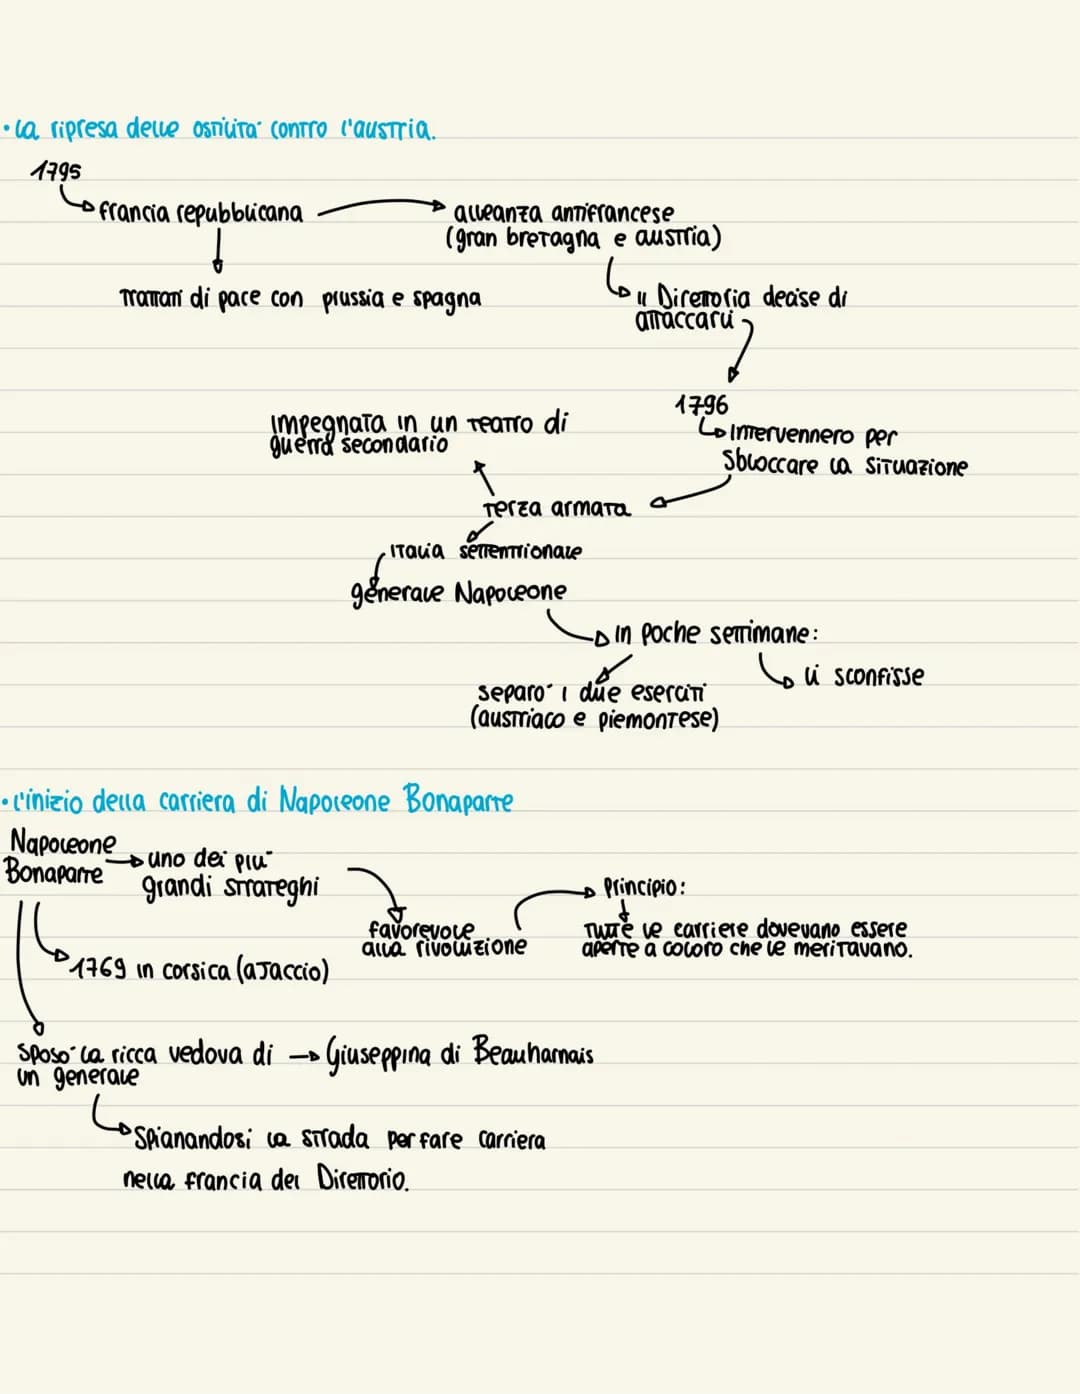 • La ripresa delle ostilità contro l'austria.
1795
francia repubblicana
alleanza antifrancese
(gran bretagna e austria)
Trattati di pace con prussia e spagna
il Direttoria decise di
attaccarli
1796
Intervennero per
sbloccare la situazione
impegnata in un teatro di
guerra secondario
terza armata
Italia settentrionale
generale Napoleone
in poche settimane:
li sconfisse
separo' i due eserciti
(austriaco e piemontese)
• l'inizio della carriera di Napoleone Bonaparte
Napoleone
Bonaparte
uno dei piu'
grandi strateghi
favorevole
alla rivoluzione
Principio:
Tutte le carriere dovevano essere
aperte a coloro che le meritavano.
1769 in corsica (aJaccio)
sposo' la ricca vedova di
un generale
Giuseppina di Beauharnais
Spianandosi la strada per fare carriera
nella francia del Direttorio.